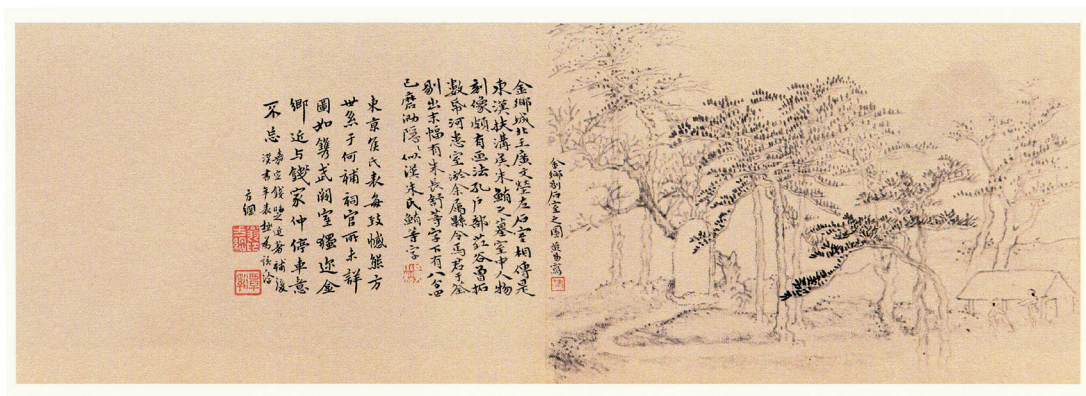 金鄉剔石室之圖
金鄉城北三廣文塋左石室相傳是
東漢扶溝侯朱鮪之墓室中人物
刻像頗有畫法孔戶部葒谷曾拓
數卷河患室於余屬縣令馬君于
剔出末幅有朱長舒等字下有八分四
已磨泐隱隱似漢朱氏鮪等字
東京侯氏表每致憾熊方
世系于何補祠官所未詳
圖如鐫武闕室猶邇金
鄉近与錢家仲停車意
不忘
嘉定錢晦之近著補後
漢書年表
方綱